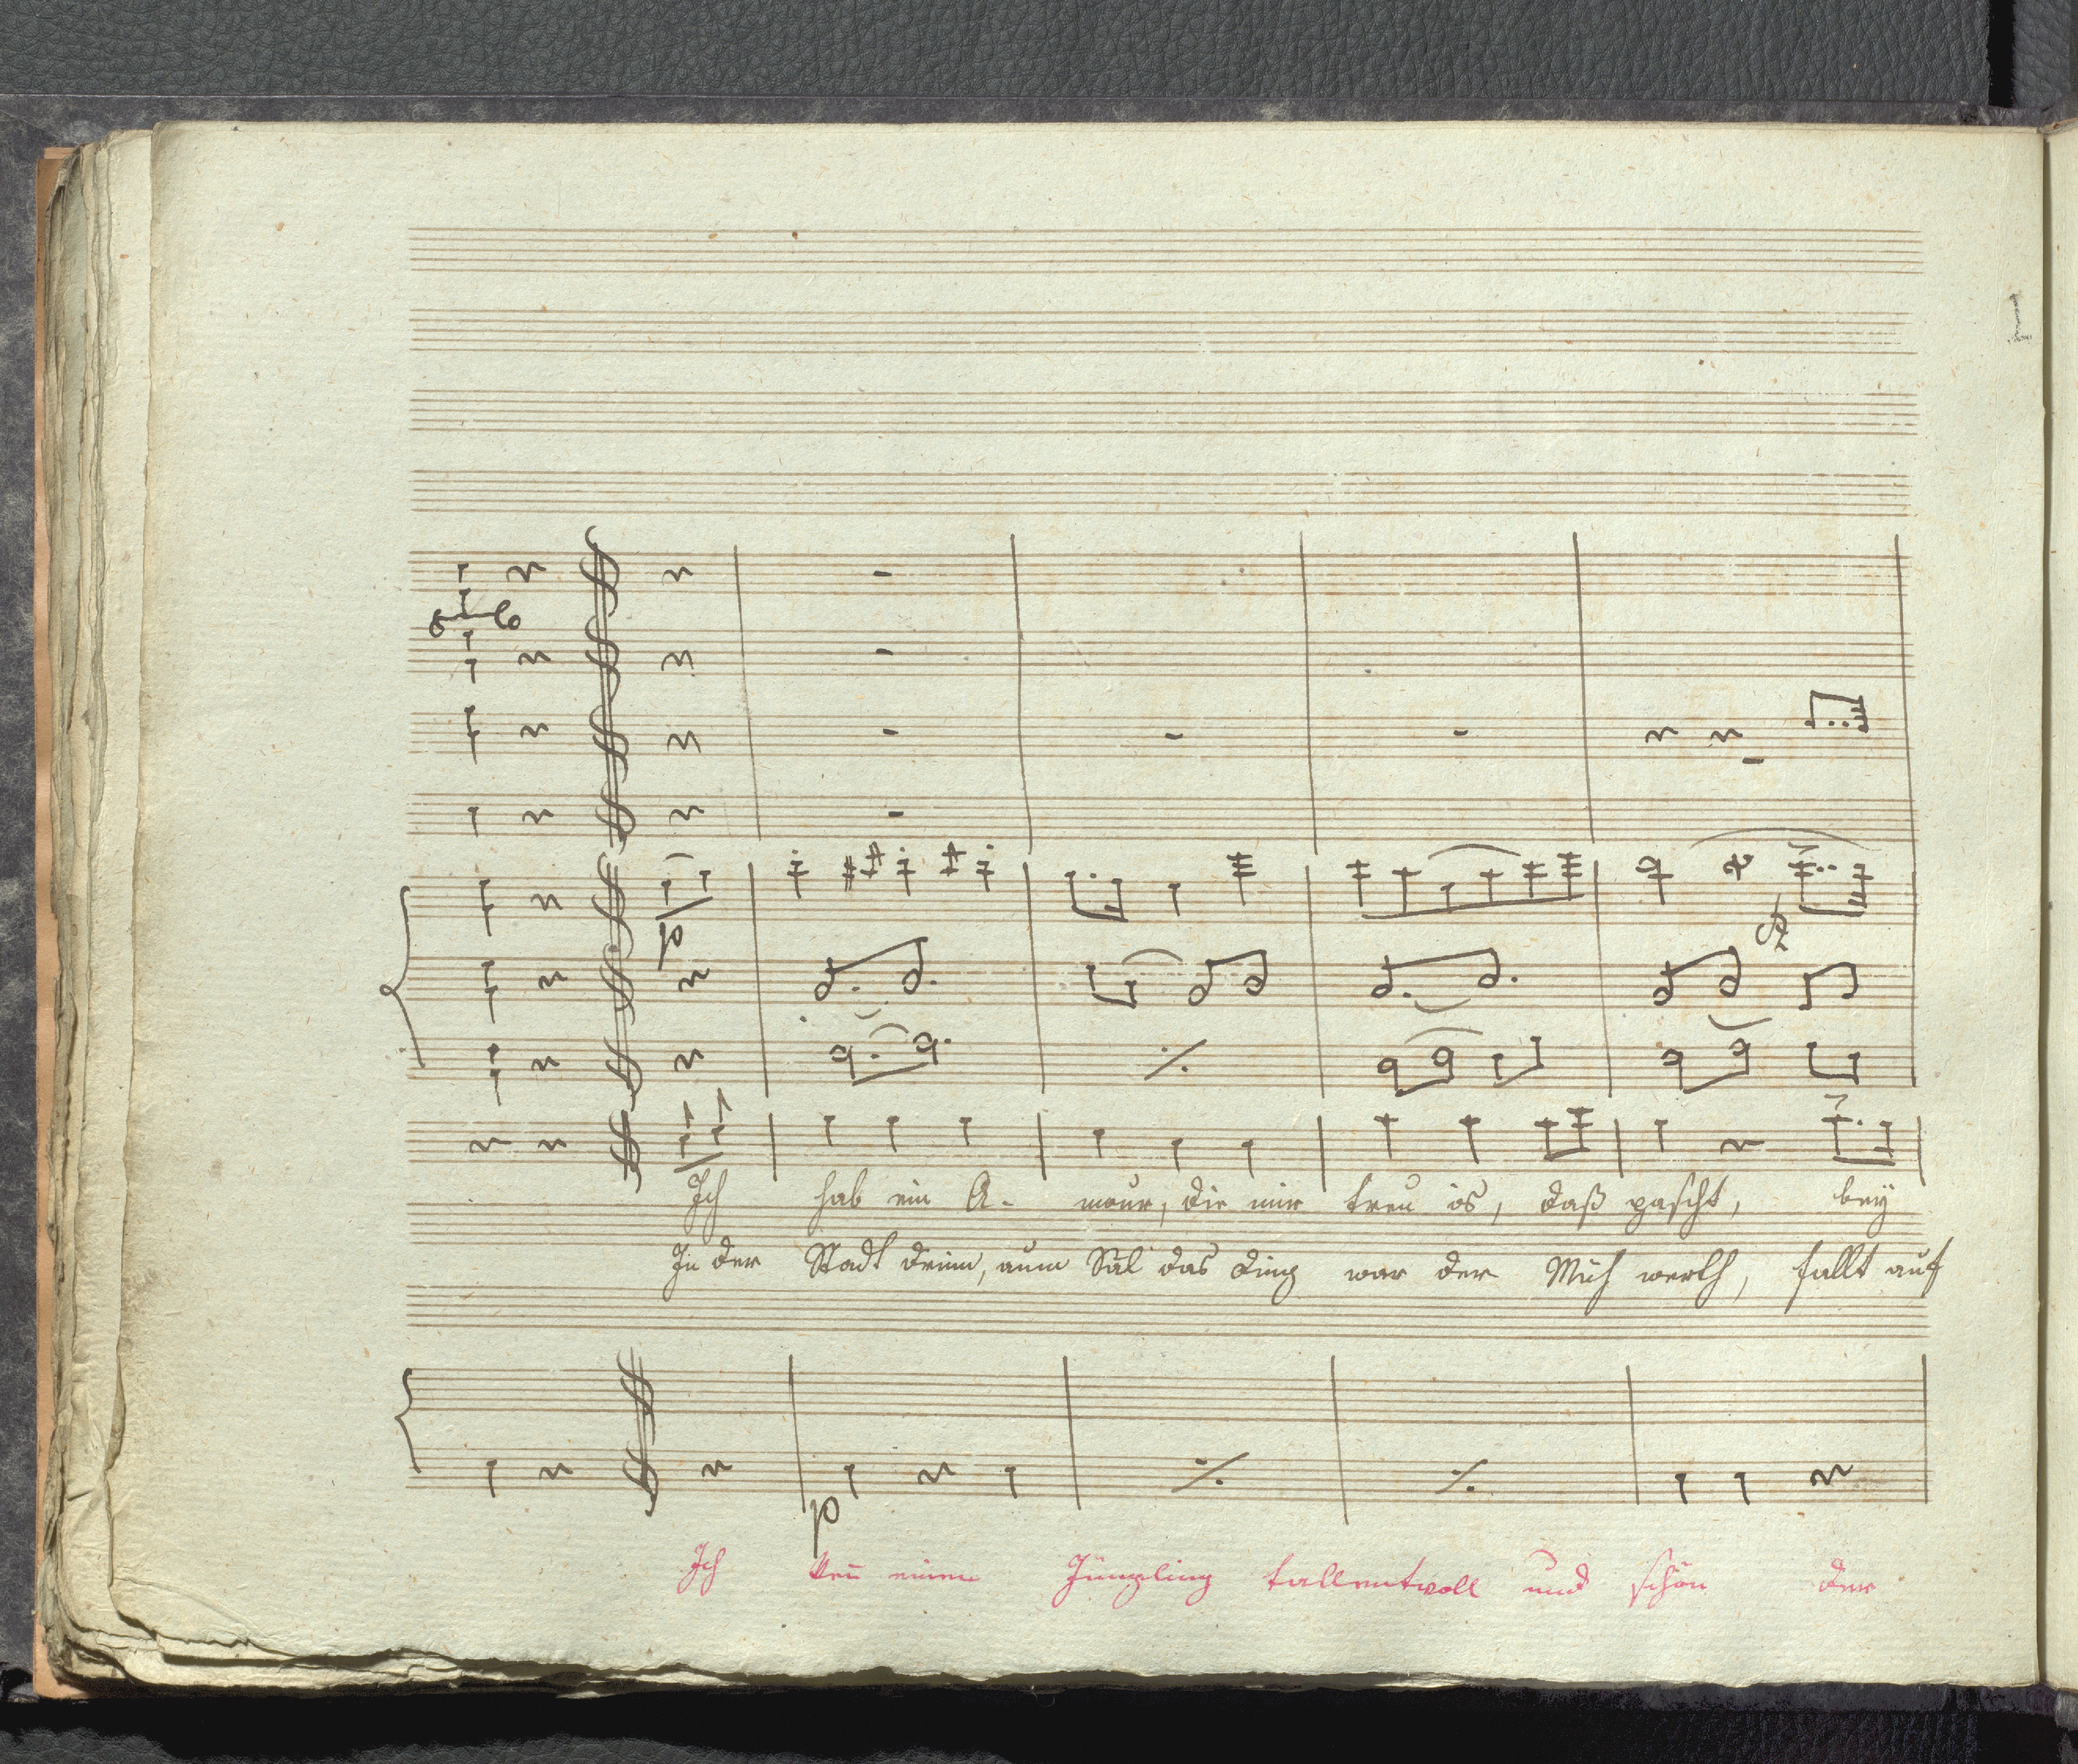 p
p
Ich hab ein A- mour, die mir treu is, daß pascht, bey
In der Stadt drinn, aum Säl das Ding war der Müh werth, fallt auf
p
Ich keñ einen Jüngling tallentvoll und schön der